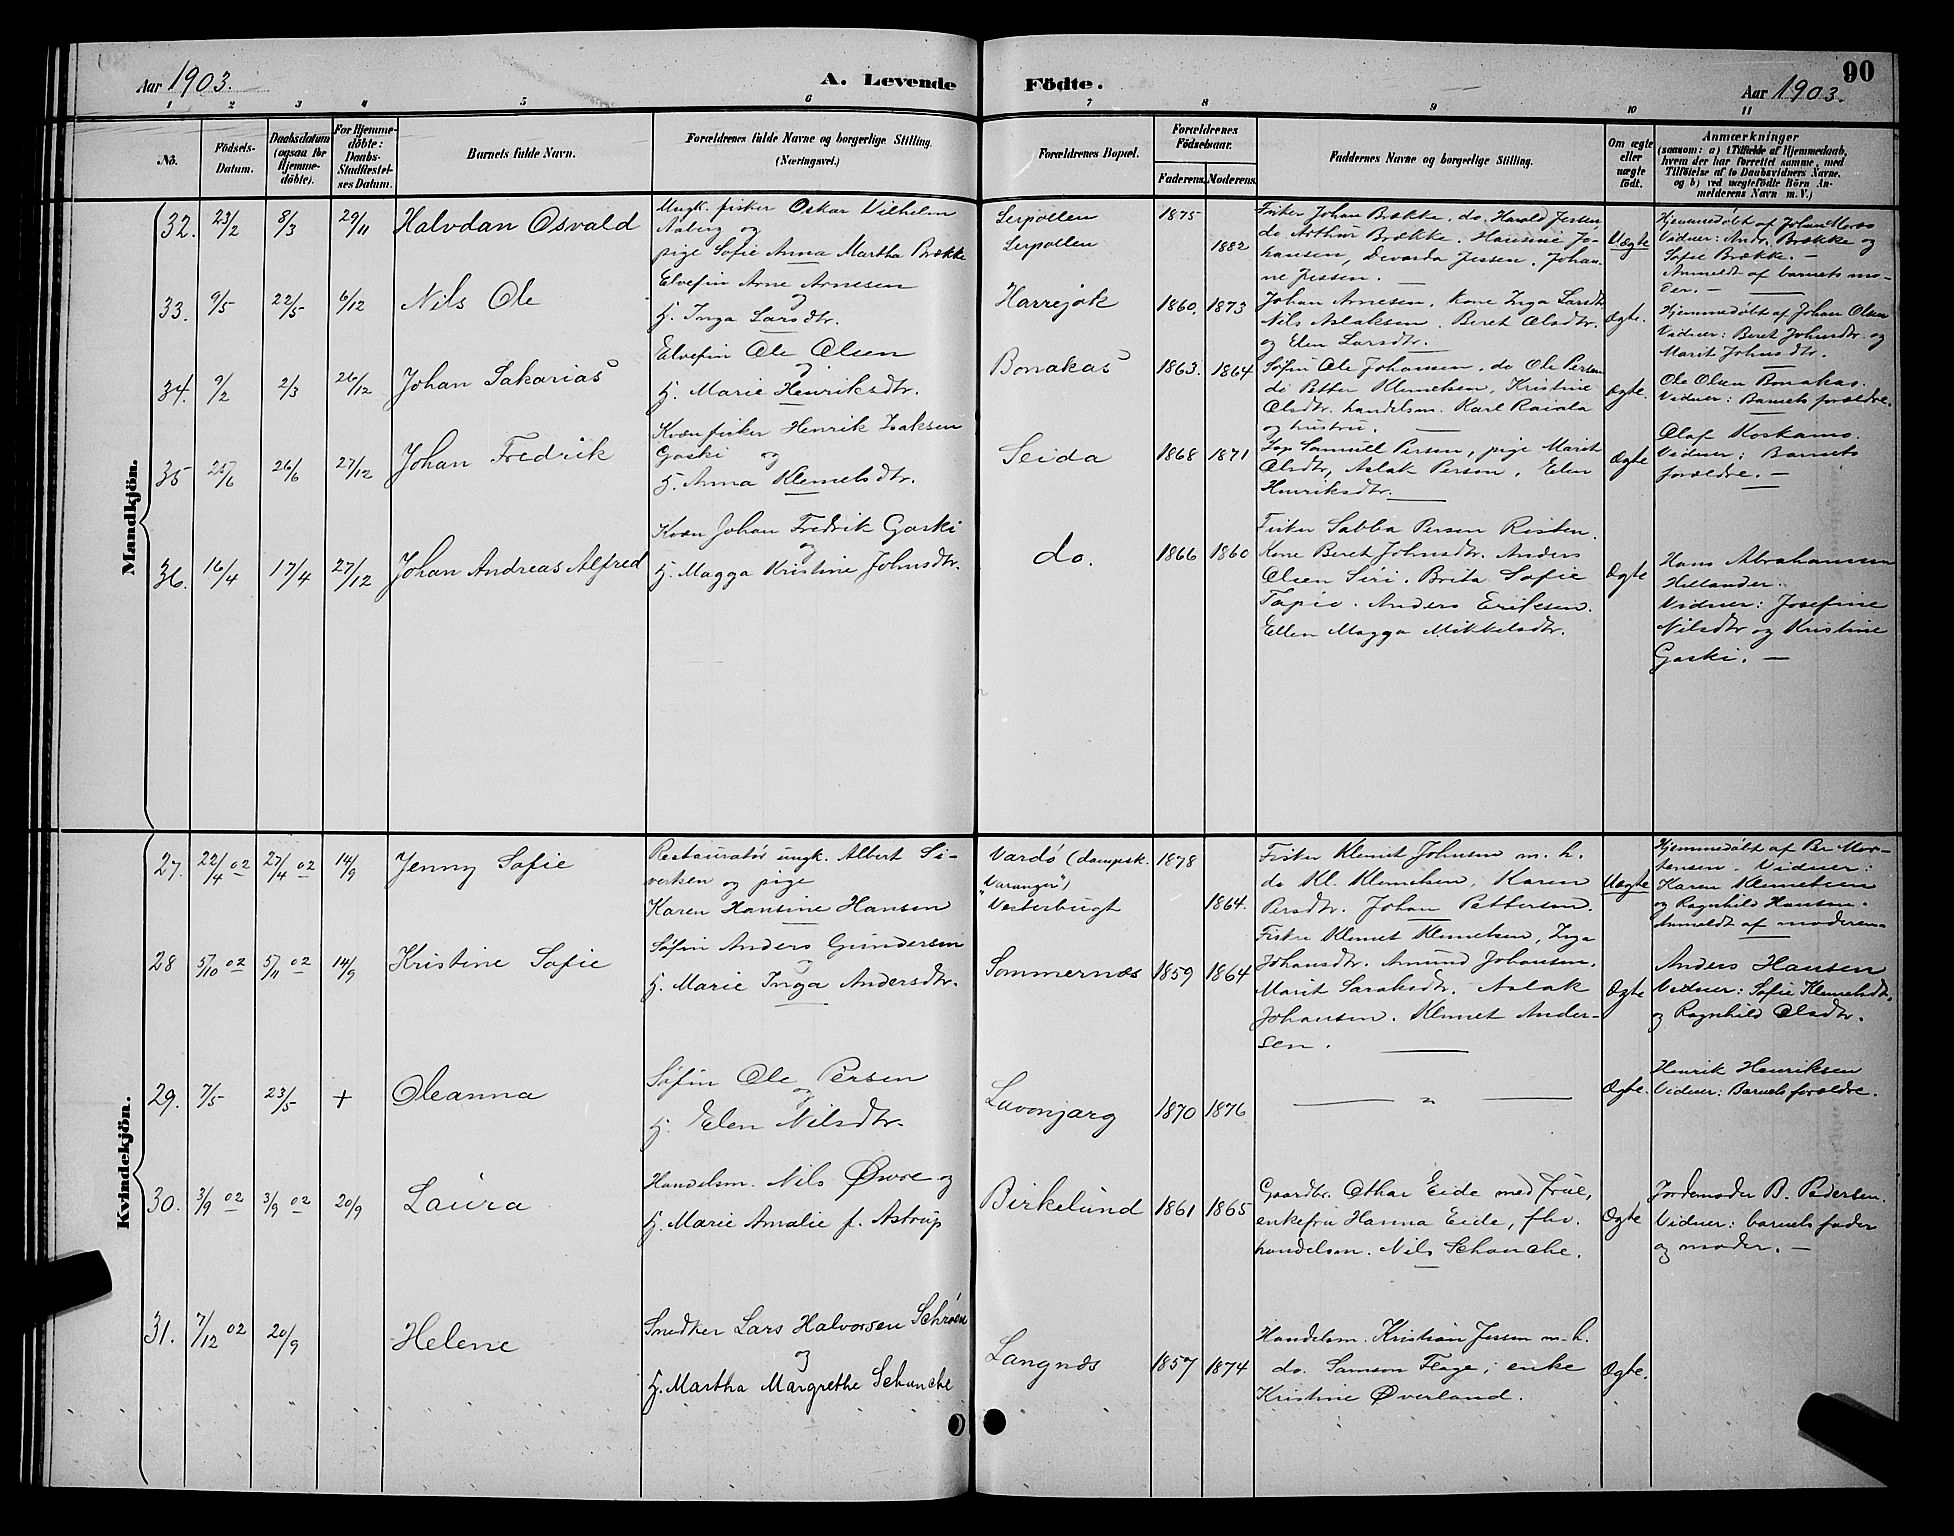 90
Aar 1903.
A. Levende
Födte.
Aar 1903.
1 2 3 4 5 6 7 8 9 10 11
No.
Födsels-
Datum.
Daabsdatum
(ogsaa for
Hjemme-
döbte).
For Hjemme-
döbte:
Daabs-
Stadfæstel-
ses Datum.
Barnets fulde Navn.
Forældrenes fulde Navne og borgerlige Stilling.
(Næringsvei.)
Forældrenes Bopæl.
Forældrenes
Födselsaar.
Faderens. Moderens.
Faddernes Navne og borgerlige Stilling.
Om ægte
eller
uægte
födt.
Anmærkninger
(saasom: a) i Tilfælde af Hjemmedaab,
hvem der har forrettet samme, med
Tilföielse af to Daabsvidners Navne.
og b) ved uægtefödte Börn An-
melderens Navn m. V.)
Mandkjön.
32. 23/2 8/3 29/11 Halvdan Osvald
Ungk. fisker Oskar Vilhelm
og
pige Sofie Anna Martha Brække
Serpollen 1875
Serpollen 1882
Fisker Johan Brække. do. Harald Jessen
do Arthur Brække. Hansine Jo-
hansen, Devarda Jessen. Johan-
ne Jessen.
Uægte
Hjemmedøbt af Johan Moros
Vidner: Andr. Brække og
Sofie Brække. —
Anmeldt af barnets mo-
der. —
33. 9/5 22/5 6/12 Nils Ole
Elvefin Arne Arnesen
og
H. Inga Larsdtr.
Harrejok 1860. 1873
Johan Arnesen. Kone Inga Larsdtr.
Nils Aslaksen. Beret Olsdtr.
og Elen Larsdtr.
Ægte.
Hjemmedøbt af Johan Olsen
Vidner: Beret Johnsdtr. og
Marit Johnsdtr.
34. 9/2 2/3 26/12 Johan Sakarias
Elvefin Ole Olsen
og
H. Marie Henriksdtr.
Bonakas 1863. 1864
Søfin Ole Johansen. do Ole Persen
do Petter Klemetsen, Kristine
Olsdtr. handelsm. Karl Raiala
og hustru.
Ægte.
Ole Olsen Bonakas.
Vidner: Barnets forældre.
35 25/6 26/6 27/12 Johan Fredrik
Kvæn fisker Henrik Isaksen
Gaski og
H. Anna Klemetsdtr.
Seida 1868 1871
Lap Samuell Persen, pige Marit
Olsdtr, Aslak Persen, Elen
Henriksdtr.
Ægte
Olaf Koskamo.
Vidner: Barnets
forældre. —
36. 16/4 17/4 27/12 Johan Andreas Alfred
Kvæn Johan Fredrik Gaski
og
H. Magga Kristine Johnsdtr.
do. 1866 1860
Fisker Sabba Persen Risten.
Kone Beret Johnsdtr. Anders
Olsen Siri. Brita Sofie
Tapio. Anders Eriksen.
Ellen Magga Mikkelsdtr.
Ægte
Hans Abrahamsen
Hillander.
Vidner: Josefine
Nilsdtr og Kristine
Gaski. —
Kvindekjön.
27. 22/4 02 27/4 02 14/9 Jenny Sofie
Restauratør ungk. Albert Si-
vertsen og pige
Karen Hansine Hansen
Vardø (dampsk. 1878
"Varanger")
Vesterbugt 1864.
Fisker Klemet Johnsen m. h.
do Kl. Klemetsen, Karen
Persdtr. Johan Pettersen.
Uægte
Hjemmedøbt af Per Mor-
tensen. Vidner:
Karen Klemetsen
og Ragnhild Hansen.
Anmeldt af moderen.
28 5/10 02 5/11 02 14/9 Kristine Sofie
Søfin Anders Gundersen
og
H. Marie Inga Andersdtr.
Sommernæs 1859 1864
Fisker Klemet Klemetsen, Inga
Johansdtr. Amund Johansen.
Marit Saraksdtr. Aslak
Johansen. Klemet Ander-
sen.
Ægte
Anders Hansen
Vidner: Sofie Klemetsdtr.
og Ragnhild Olsdtr.
29. 7/5 23/5 + Oleanna
Søfin Ole Persen
og
H. Elen Nilsdtr.
Lavonjarg 1870 1876
— " —
Ægte.
Henrik Henriksen
Vidner: Barnets forældre.
30. 3/9 02 3/9 02 20/9 Laura
Handelsm. Nils Øwre og
H. Marie Amalie f. Astrup
Birkelund 1861 1865
Gaardbr. Othar Eide med frue,
enkefru Hanna Eide, fhv.
handelsm. Nils Schanche.
Ægte
Jordemoder B. Pedersen.
Vidner: barnets fader
og moder. —
31. 7/12 02 20/9 Helene
Snedker Lars Halvorsen Schrøen
og
H. Martha Margrethe Schanche
Langnæs 1857 1874
Handelsm. Kristian Jessen m. h.
do. Samson Flage; enke
Kristine Øverland.
Ægte.